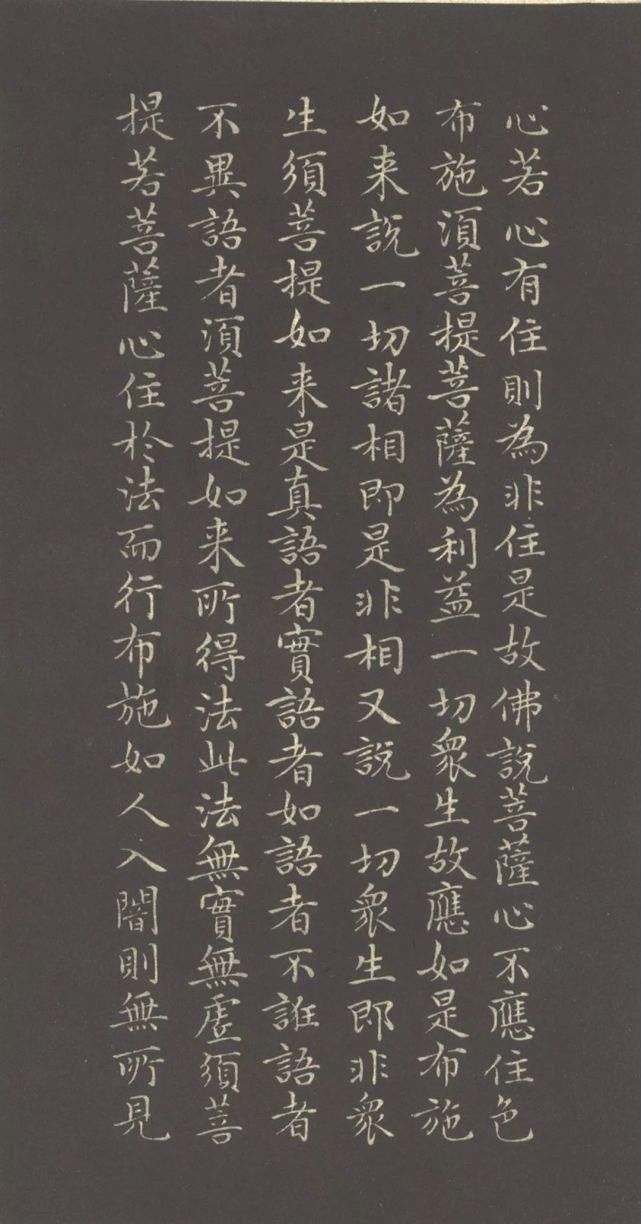 心若心有住則為非住是故佛說菩薩心不應住色
布施須菩提菩薩為利益一切眾生故應如是布施
如来說一切諸相即是非相又說一切眾生即非眾
生須菩提如来是真語者實語者如語者不誑語者
不異語者須菩提如来所得法此法無實無虛須菩
提若菩薩心住於法而行布施如人入闇則無所見